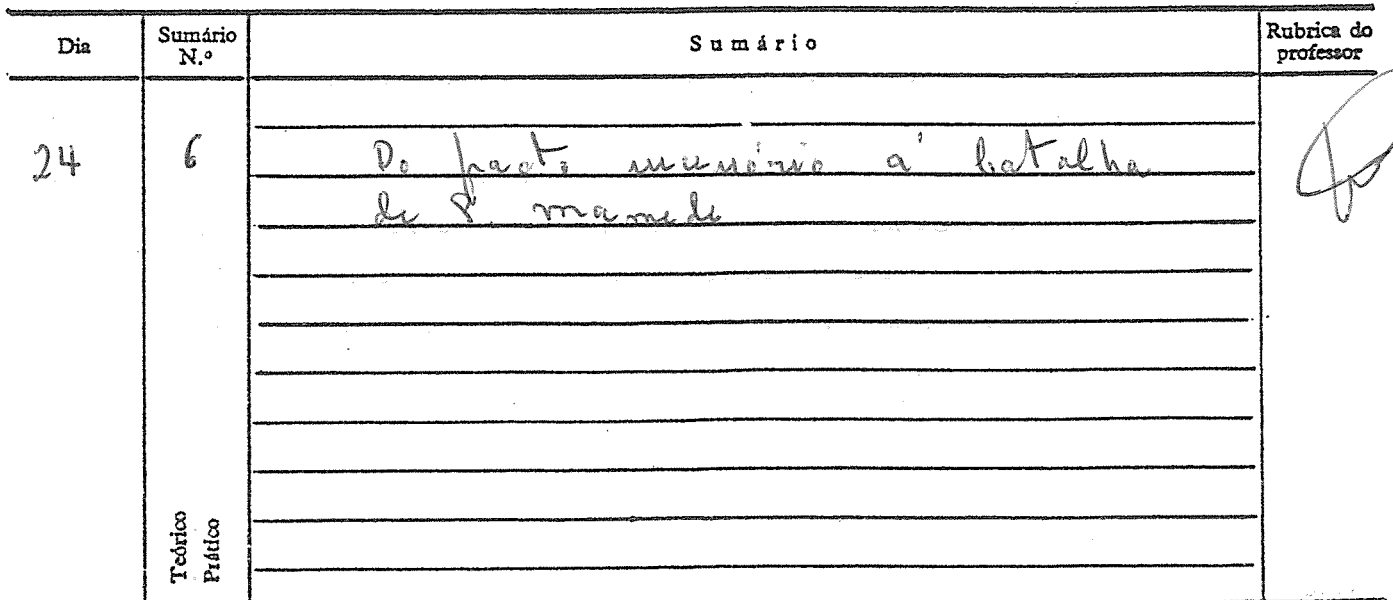 Dia
Sumário N.º
Sumário
Rubrica do professor
24
6
Do pacto sucessório à batalha
de S. Mamede
Teórico
Prático